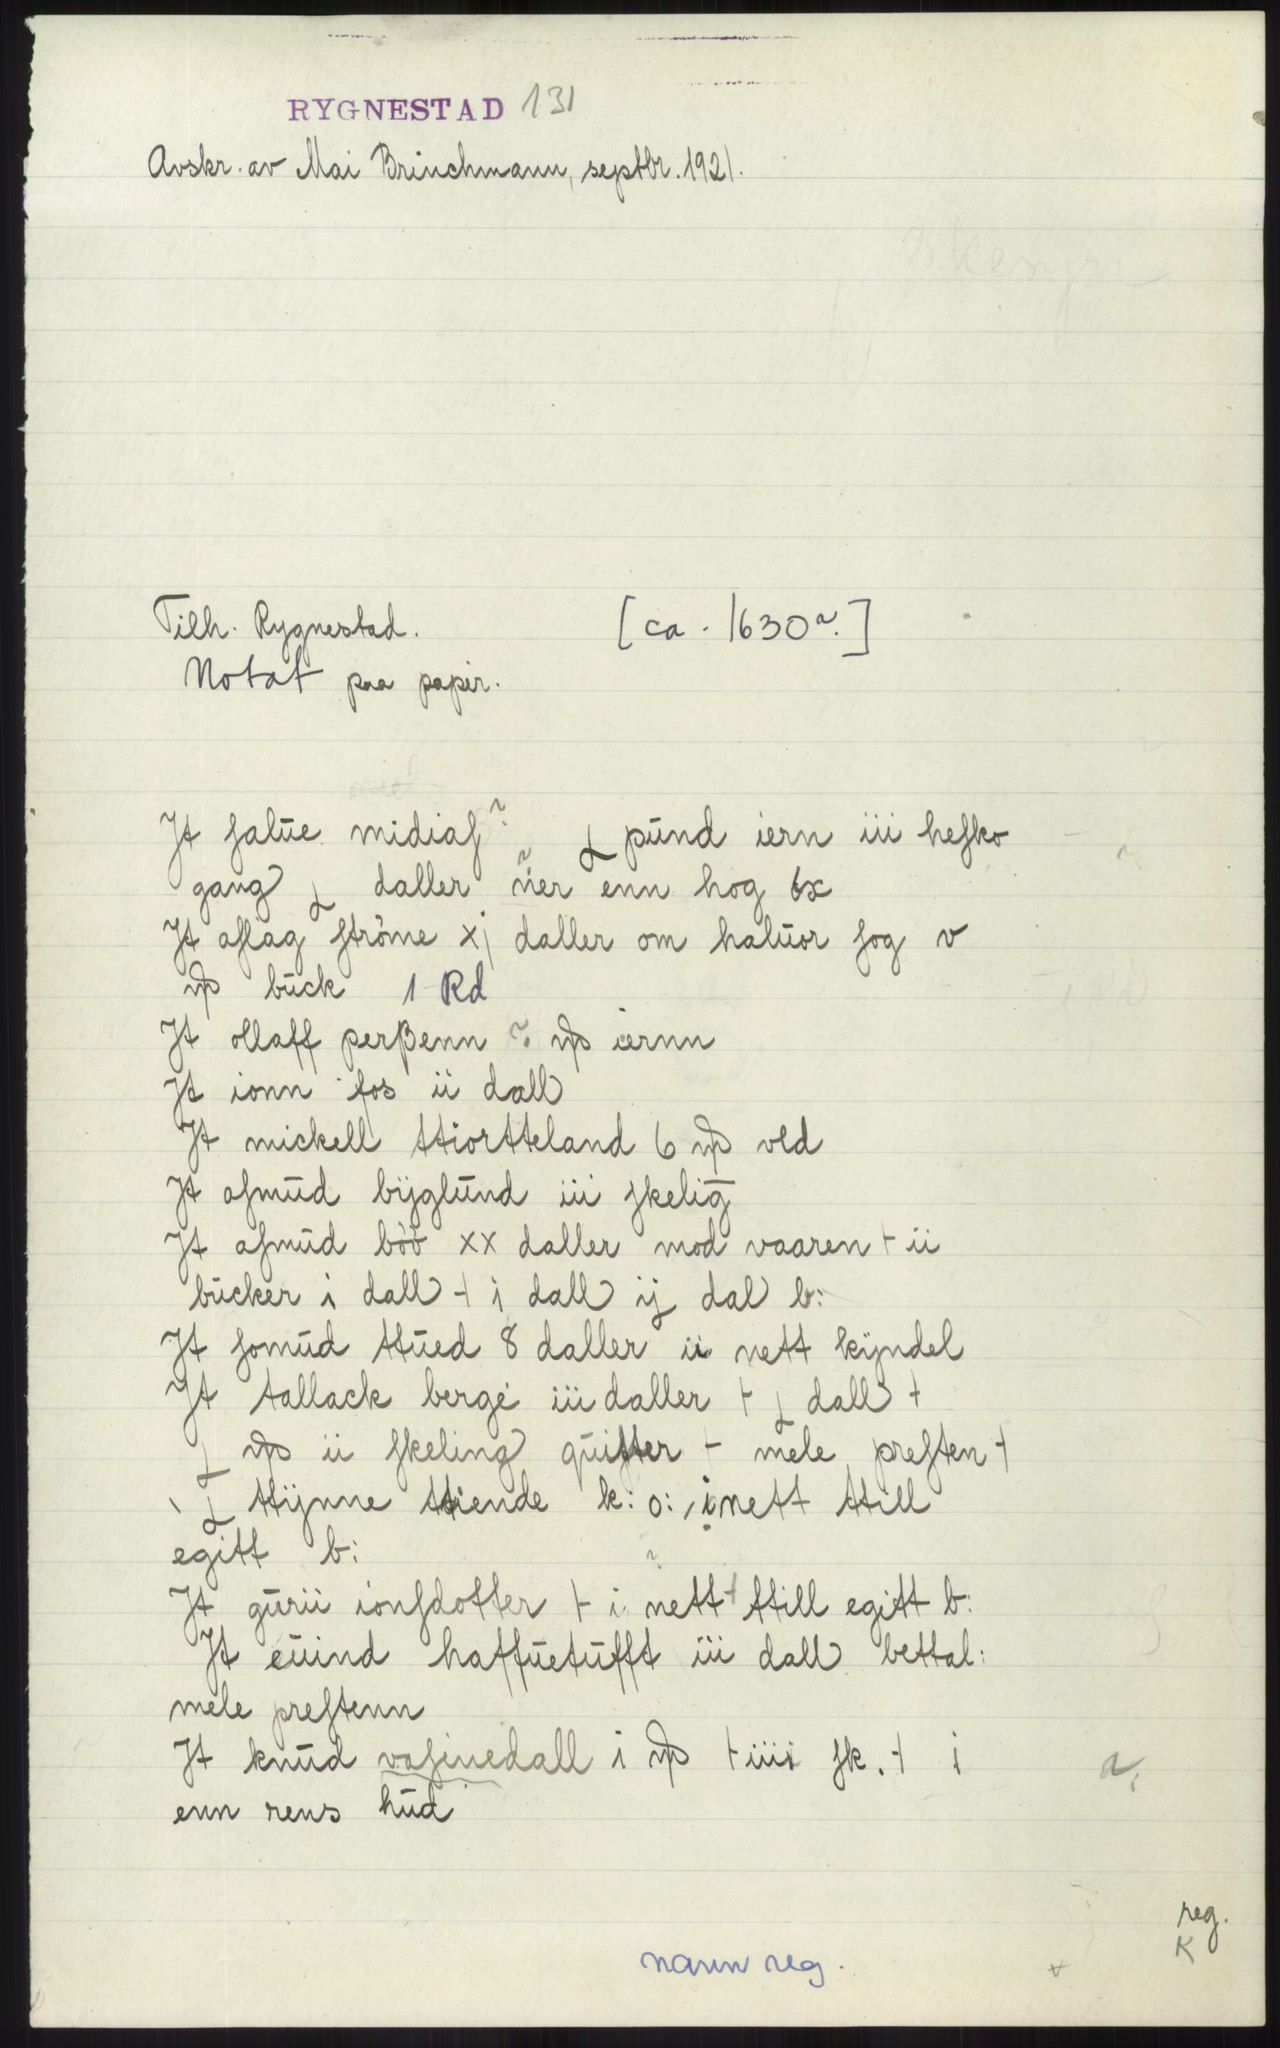 RYGNESTAD 131
Avskr. av Mai Brinchmann, septbr. 1921.
Tilh. Rygnestad. [ca. 1630?]
Notat paa papir.
It salŭe midias? ɟ pŭnd iern iii hesko
gang ɟ daller ner enn hog 6x
It aslag ströme xj daller om halŭor sog v
bŭck 1 Rd
It ollaff perßenn iernn
It ionn fos ii dall
It mickell ttiortteland 6 ved
It asmŭd bÿglŭnd iii skelig̅
It asmŭd böö xx daller mod vaaren + ii
bŭcker i dall + i dall ij dal b:
It somŭd ttŭed 8 daller ii nett kÿndel
It tallack berge iii daller + ɟ dall +
ɟ ii skeling qŭister + mele presten +
ɟ ttÿnne ttiende k: o: i nett ttill
egitt b:
It gŭrii ionsdotter + i nett + ttill egitt b:
It eŭind haffŭetŭfft iii dall bettal:
mele prestenn
It knŭd vasinedall i + iiii sk. + i
enn rens hŭd
reg.
K
navn reg.